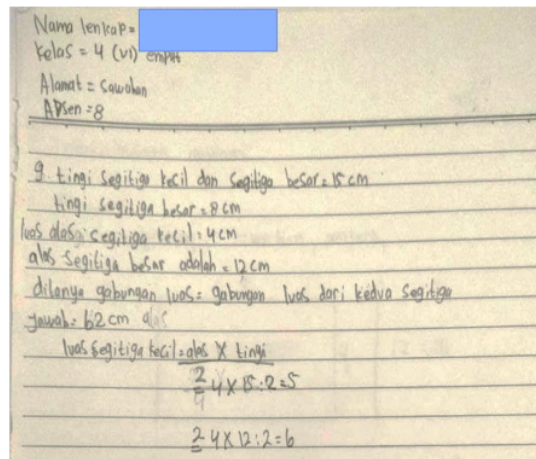 Nama lenkap =
Kelas = 4 (VI) empat
Alamat = Sawahan
Absen = 8
9. tingi segitiga kecil dan segitiga besar = 15 cm
tingi segitiga besar = 8 cm
luas alas segitiga kecil = 4 cm
alas segitiga besar adalah = 12 cm
ditanya gabungan luas = gabungan luas dari kedua segitiga
Jawab = 62 cm alas
luas segitiga kecil = alas X tingi
2
4 X 15 : 2 = 5
2 4 X 12 : 2 = 6